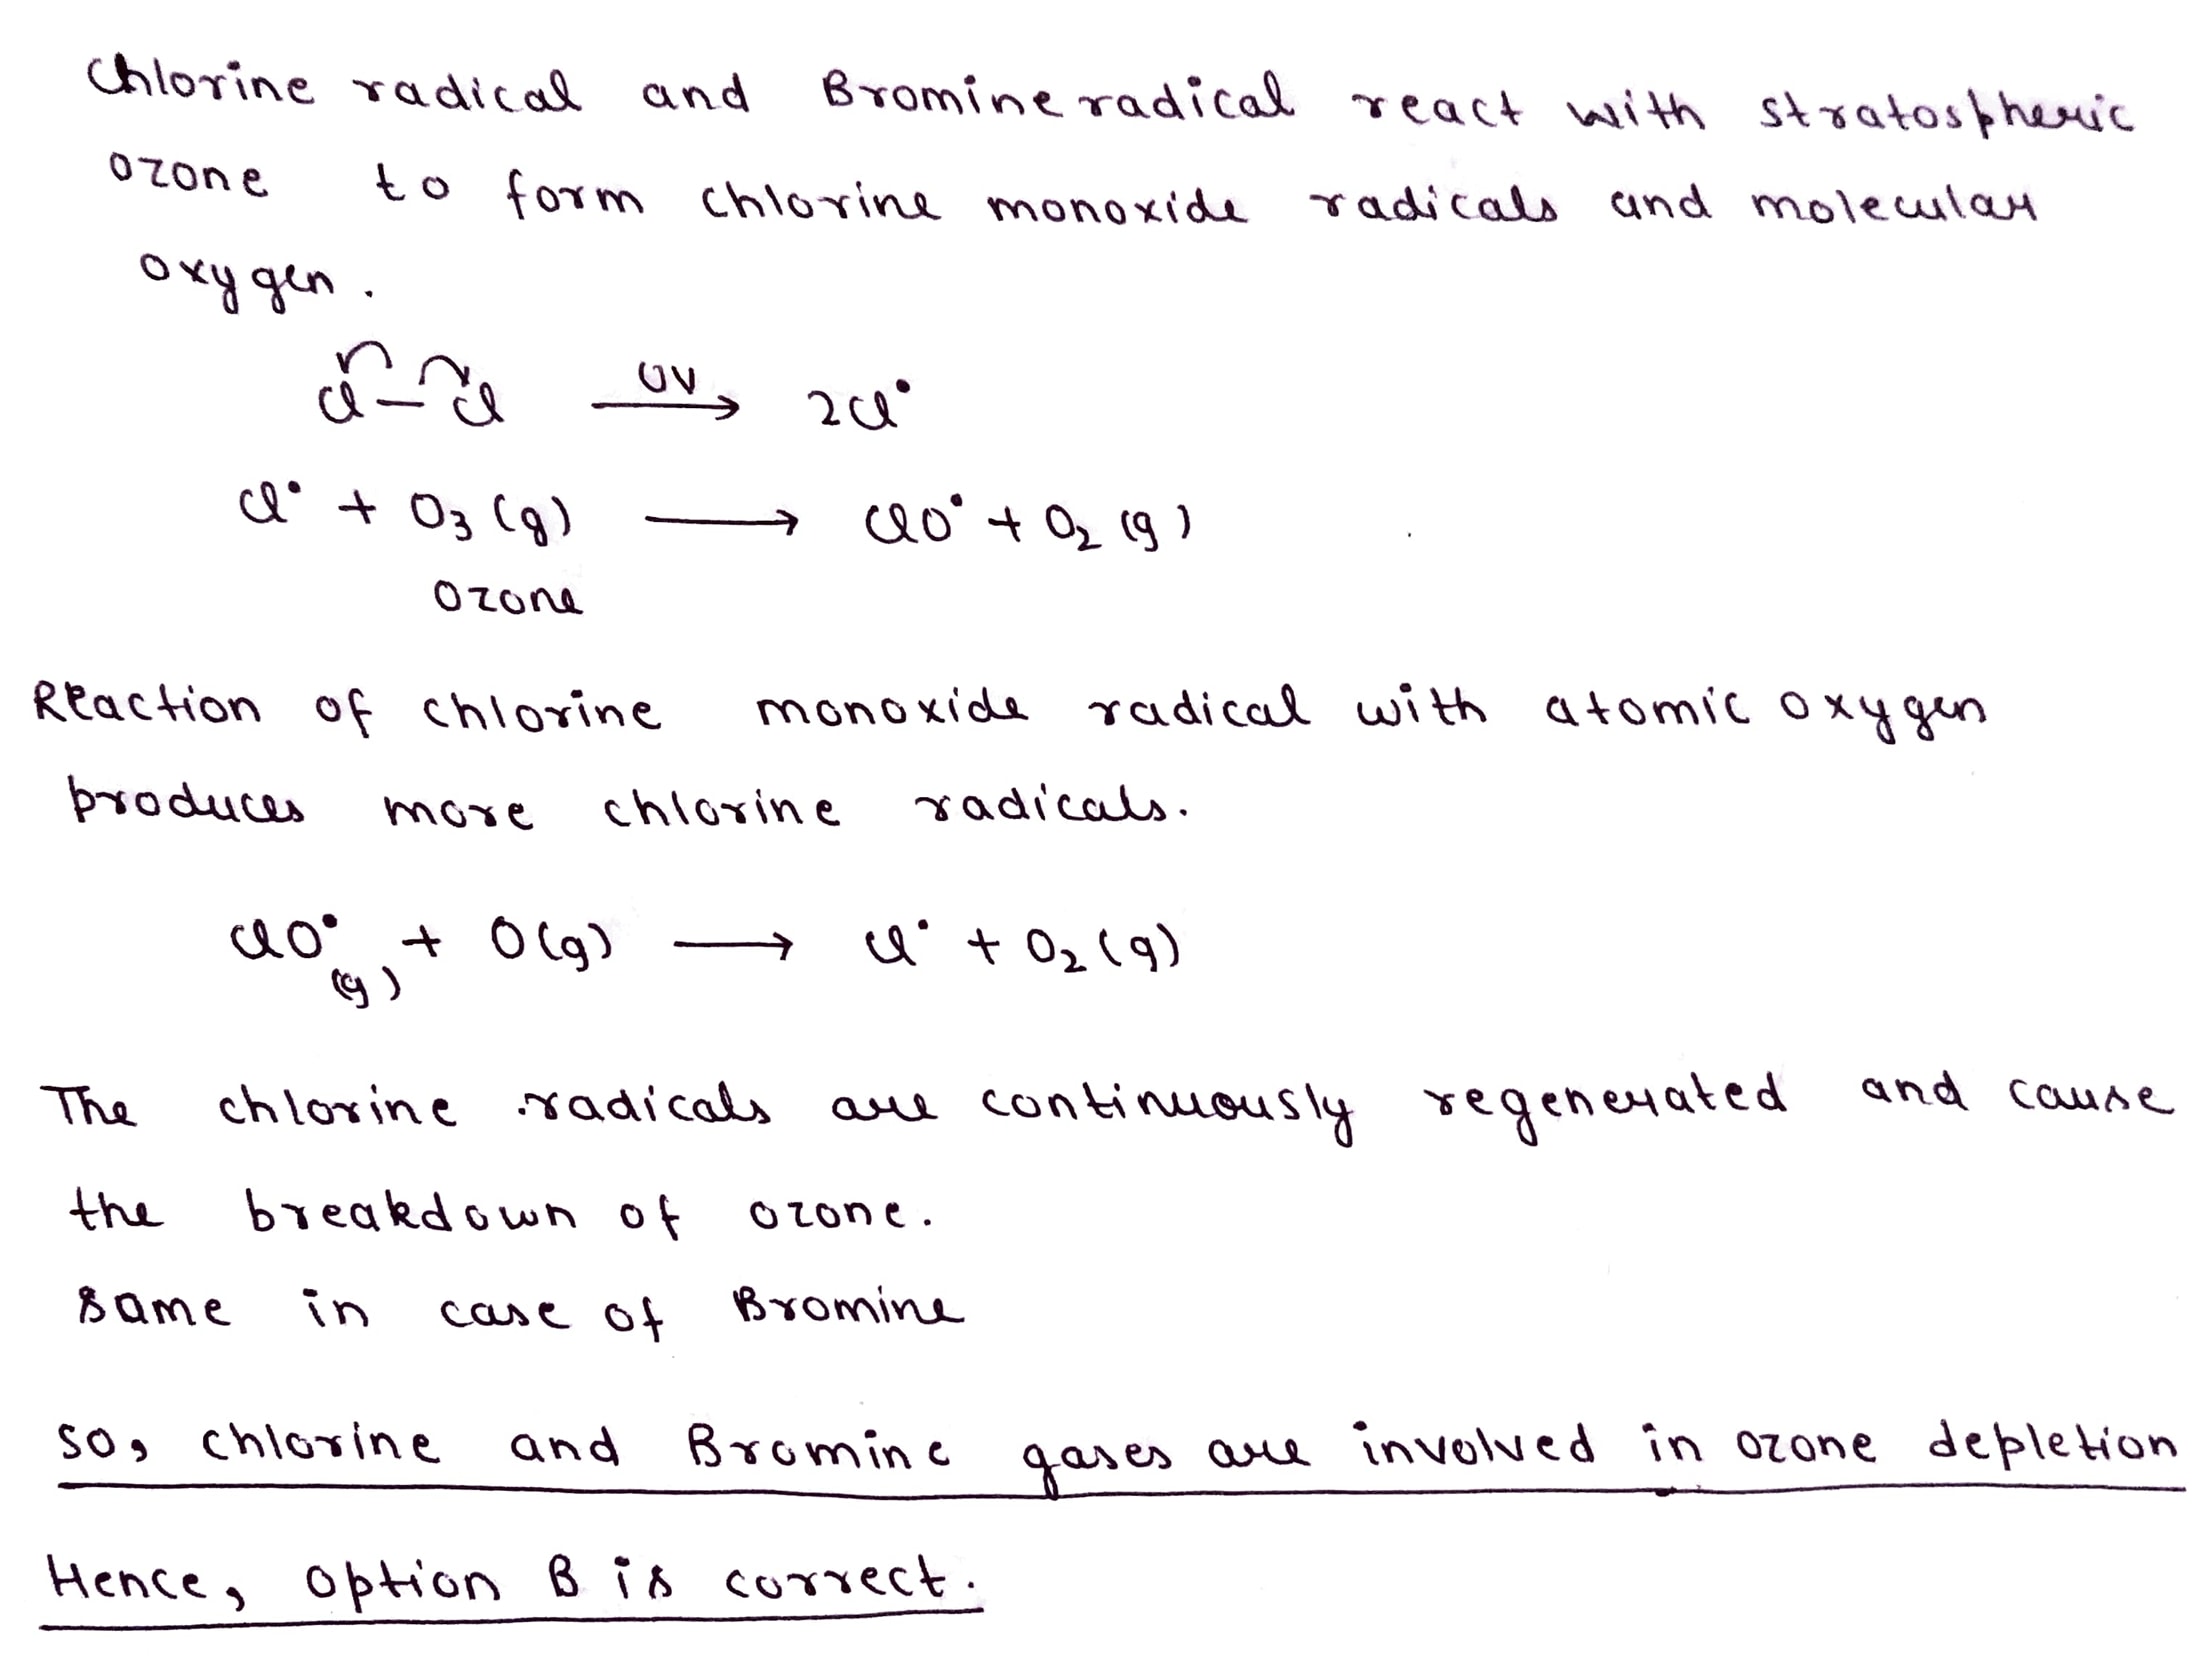 Chlorine radical and Bromine radical react with stratospheric
ozone to form chlorine monoxide radicals and molecular
oxygen.
Cl–Cl —UV→ 2Cl•
Cl• + O3 (g) ⟶ ClO• + O2 (g)
Ozone
Reaction of chlorine monoxide radical with atomic oxygen
produces more chlorine radicals.
ClO•(g) + O(g) ⟶ Cl• + O2 (g)
The chlorine radicals are continuously regenerated and cause
the breakdown of ozone.
same in case of Bromine
so, chlorine and Bromine gases are involved in ozone depletion
Hence, option B is correct.